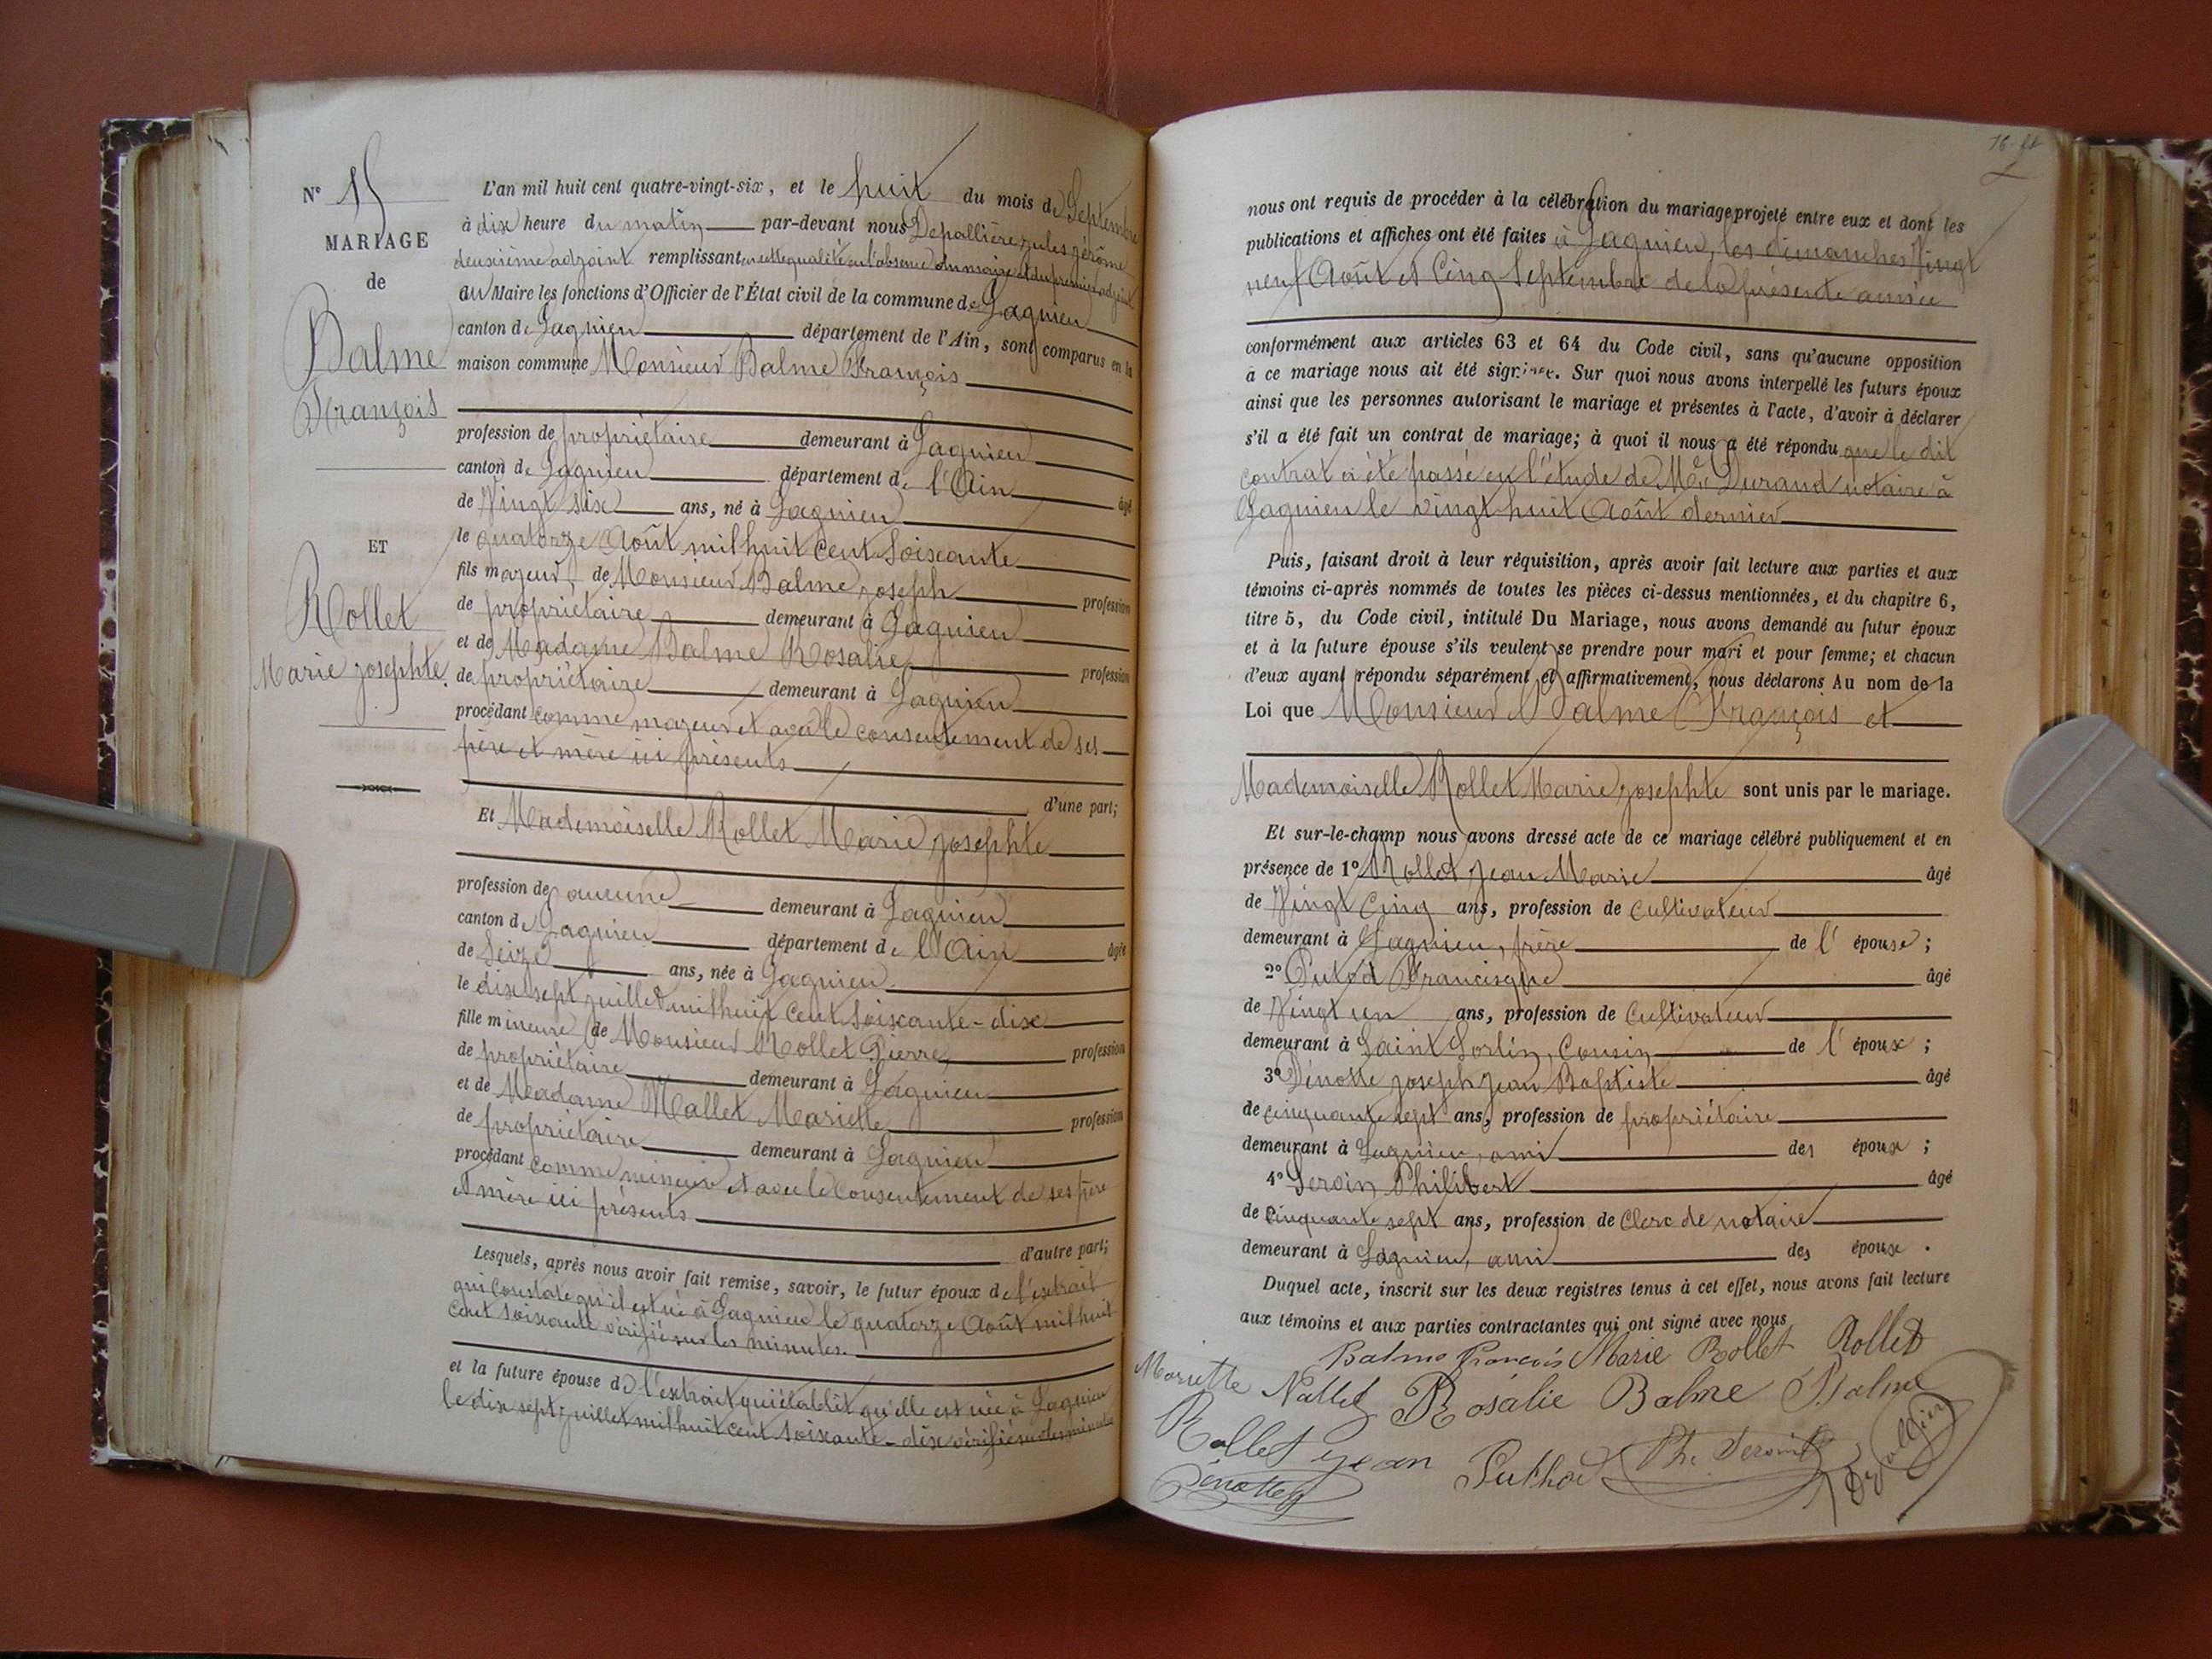 N° 15
MARIAGE
de
Balme
François
ET
Rollet
Marie Josephte.
L'an mil huit cent quatre-vingt-six, et le huit du mois de Septembre
à dix heure du matin par-devant nous Depallière Jules Jérôme
deuxième adjoint remplissant en cette qualité en l'absence du maire et du premier adjoint
au Maire les fonctions d'Officier de l'État civil de la commune de Lagnieu
canton de Lagnieu département de l'Ain, sont comparus en la
maison commune Monsieur Balme François
profession de propriétaire demeurant à Lagnieu
canton de Lagnieu département de l'Ain âgé
de Vingt six ans, né à Lagnieu
le quatorze Août mil huit Cent Soixante
fils majeur de Monsieur Balme Joseph profession
de propriétaire demeurant à Lagnieu
et de Madame Balme Rosalie profession
de propriétaire demeurant à Lagnieu
procédant comme majeur et avec le consentement de ses
père et mère ici présents
d'une part;
Et Mademoiselle Rollet Marie Josephte
profession de aucune demeurant à Lagnieu
canton de Lagnieu département de l'Ain âgée
de Seize ans, née à Lagnieu
le dix sept juillet mil huit Cent Soixante-dix
fille mineure de Monsieur Rollet Pierre profession
de propriétaire demeurant à Lagnieu
et de Madame Nallet Mariette profession
de propriétaire demeurant à Lagnieu
procédant comme mineure et avec le Consentement de ses père
et mère ici présents
d'autre part;
Lesquels, après nous avoir fait remise, savoir, le futur époux de l'extrait
qui Constate qu'il est né à Lagnieu le quatorze Août mil huit
Cent Soixante vérifié sur les minutes.
et la future épouse de l'extrait qui établit qu'elle est née à Lagnieu
le dix sept juillet mil huit cent soixante-dix vérifié sur les minutes
16.
nous ont requis de procéder à la célébration du mariage projeté entre eux et dont les
publications et affiches ont été faites à Lagnieu, les dimanches Vingt
neuf Août et Cinq Septembre de la présente année
conformément aux articles 63 et 64 du Code civil, sans qu'aucune opposition
à ce mariage nous ait été signifiée. Sur quoi nous avons interpellé les futurs époux
ainsi que les personnes autorisant le mariage et présentes à l'acte, d'avoir à déclarer
s'il a été fait un contrat de mariage; à quoi il nous a été répondu que le dit
contrat a été passé en l'étude de Me Durand notaire à
Lagnieu le vingt huit Août dernier
Puis, faisant droit à leur réquisition, après avoir fait lecture aux parties et aux
témoins ci-après nommés de toutes les pièces ci-dessus mentionnées, et du chapitre 6,
titre 5, du Code civil, intitulé Du Mariage, nous avons demandé au futur époux
et à la future épouse s'ils veulent se prendre pour mari et pour femme; et chacun
d'eux ayant répondu séparément et affirmativement, nous déclarons Au nom de la
Loi que Monsieur Balme François et
Mademoiselle Rollet Marie Josephte sont unis par le mariage.
Et sur-le-champ nous avons dressé acte de ce mariage célébré publiquement et en
présence de 1° Rollet Jean Marie âgé
de Vingt Cinq ans, profession de Cultivateur
demeurant à Lagnieu, frère de l'épouse;
2° Putod Francisque âgé
de Vingt un ans, profession de Cultivateur
demeurant à Saint Sorlin, Cousin de l'époux;
3° Pénotte Joseph Jean Baptiste âgé
de cinquante sept ans, profession de propriétaire
demeurant à Lagnieu, ami des époux;
4° Seroin Philibert âgé
de Cinquante sept ans, profession de Clerc de notaire
demeurant à Lagnieu, ami des époux.
Duquel acte, inscrit sur les deux registres tenus à cet effet, nous avons fait lecture
aux témoins et aux parties contractantes qui ont signé avec nous
Balme François Marie Rollet Rollet
Mariette Nallet Rosalie Balme Balme
Rollet Jean Puthod Ph. Seroin
Pénotte